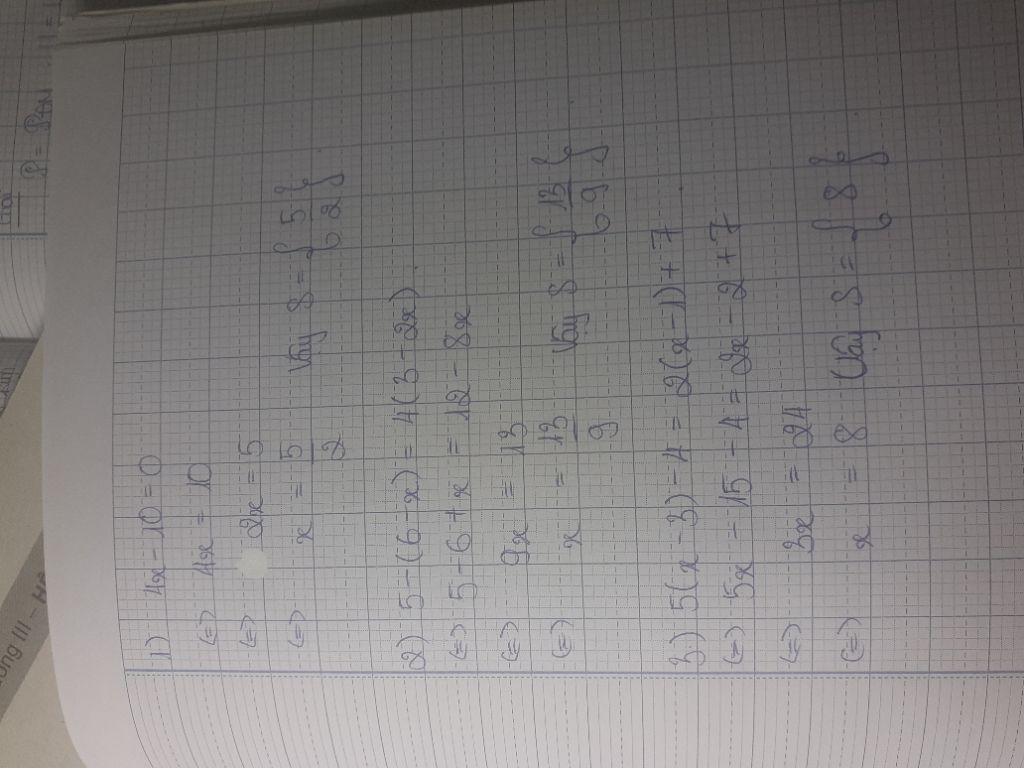 1) 4x - 10 = 0
(=) 4x = 10
(=) 2x = 5
(=) x = 5/2 Vậy S = {5/2}
2) 5 - (6 - x) = 4(3 - 2x)
(=) 5 - 6 + x = 12 - 8x
(=) 9x = 13
(=) x = 13/9 Vậy S = {13/9}
3) 5(x - 3) - 4 = 2(x - 1) + 7
(=) 5x - 15 - 4 = 2x - 2 + 7
(=) 3x = 24
(=) x = 8 Vậy S = {8}